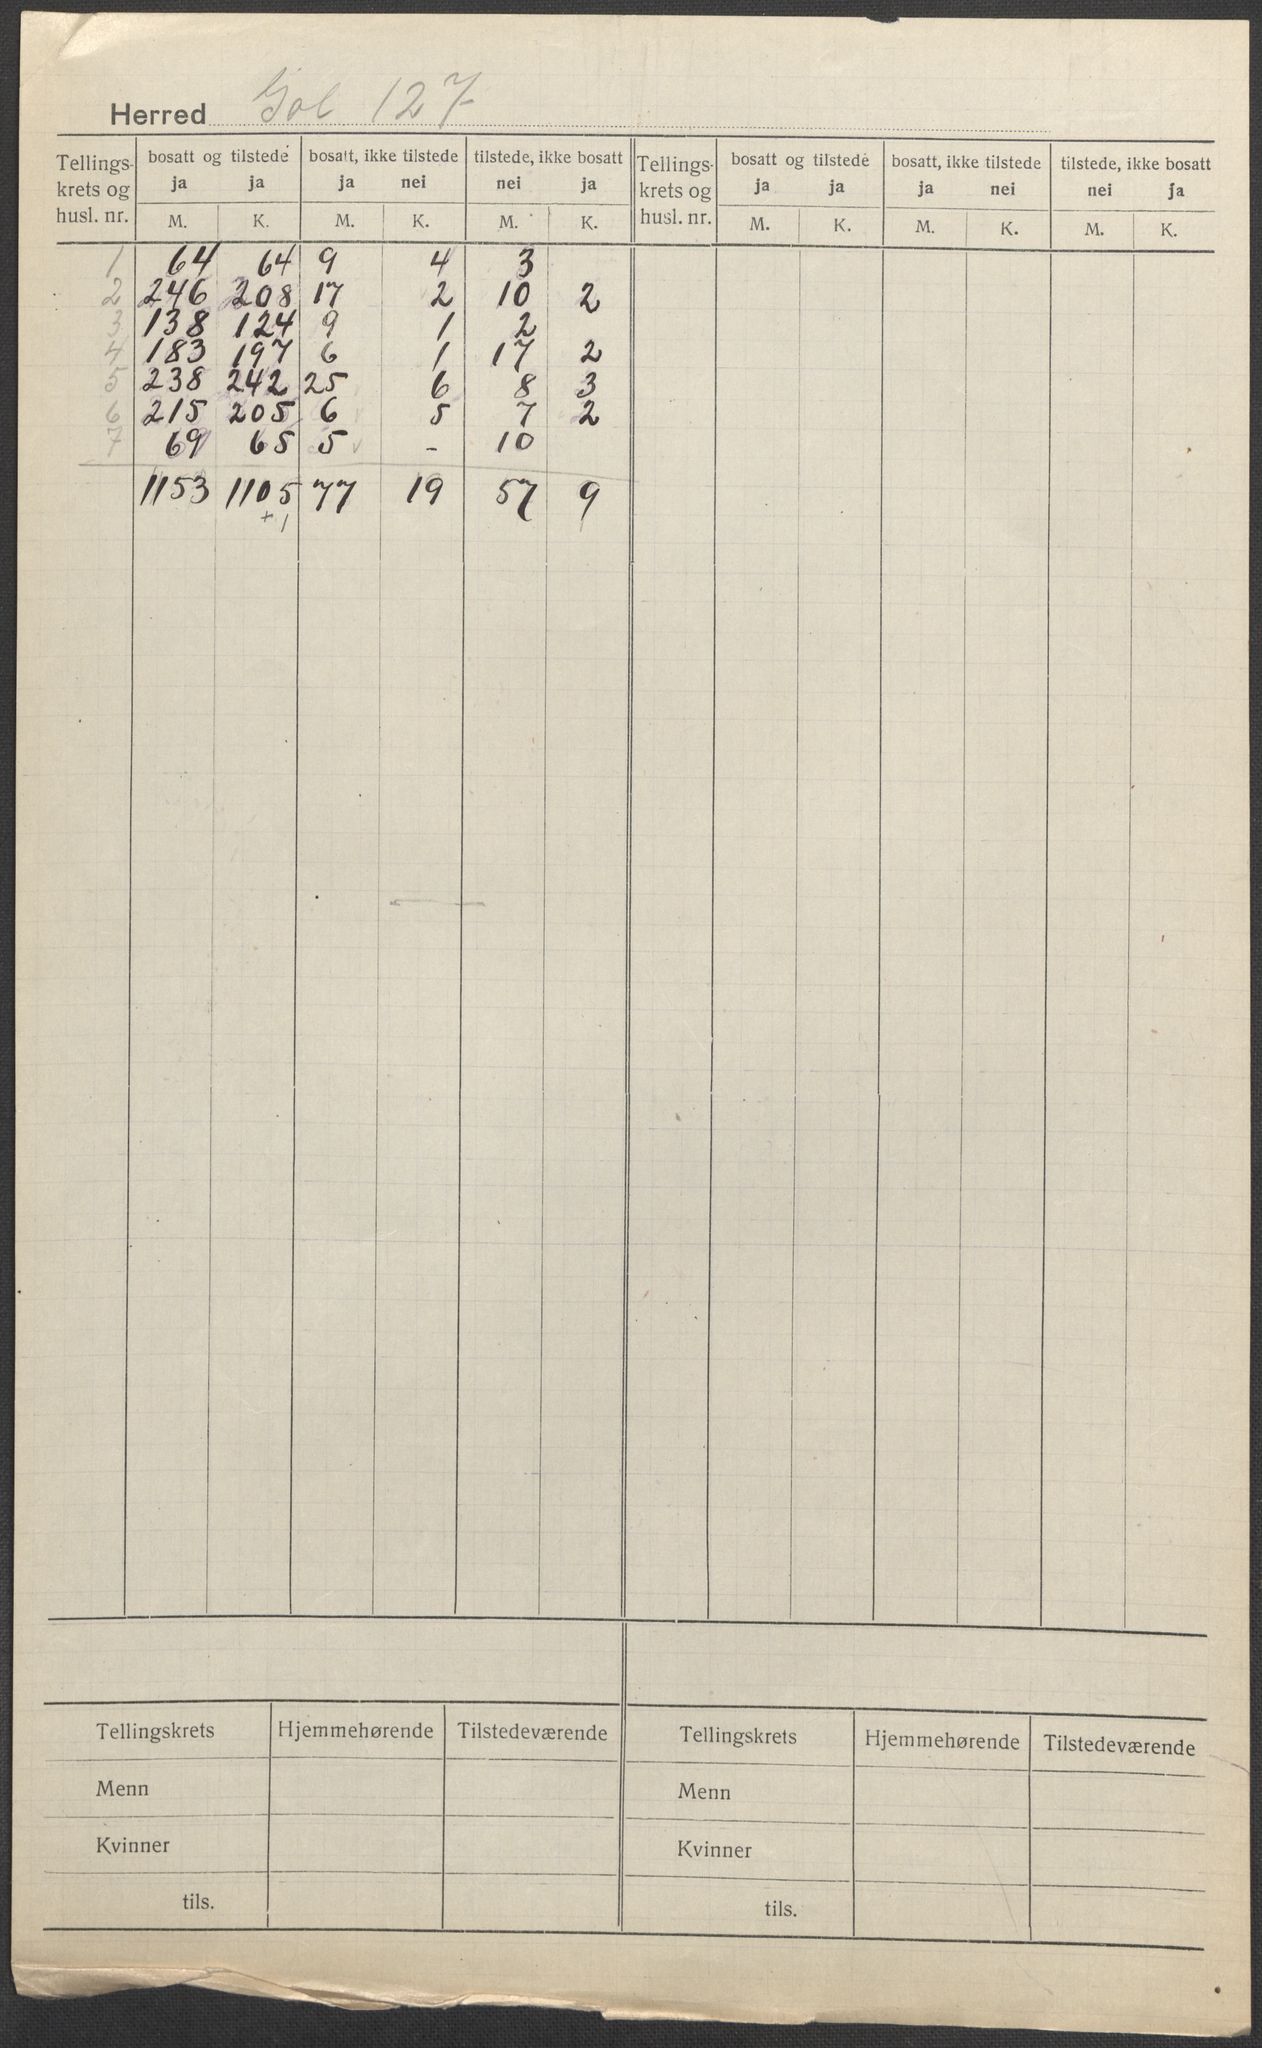 Herred Gol 127
Tellings- krets og husl. nr. bosatt og tilstede bosatt, ikke tilstede tilstede, ikke bosatt Tellings- krets og husl. nr. bosatt og tilstede bosatt, ikke tilstede tilstede, ikke bosatt
ja ja ja nei nei ja ja ja ja nei nei ja
M. K. M. K. M. K. M. K. M. K. M. K.
1 64 64 9 4 3
2 246 208 17 2 10 2
3 138 124 9 1 2
4 183 197 6 1 17 2
5 238 242 25 6 8 3
6 215 205 6 5 7 2
7 69 65 5 - 10
1153 1105 77 19 57 9
+1
Tellingskrets Hjemmehørende Tilstedeværende Tellingskrets Hjemmehørende Tilstedeværende
Menn Menn
Kvinner Kvinner
tils. tils.